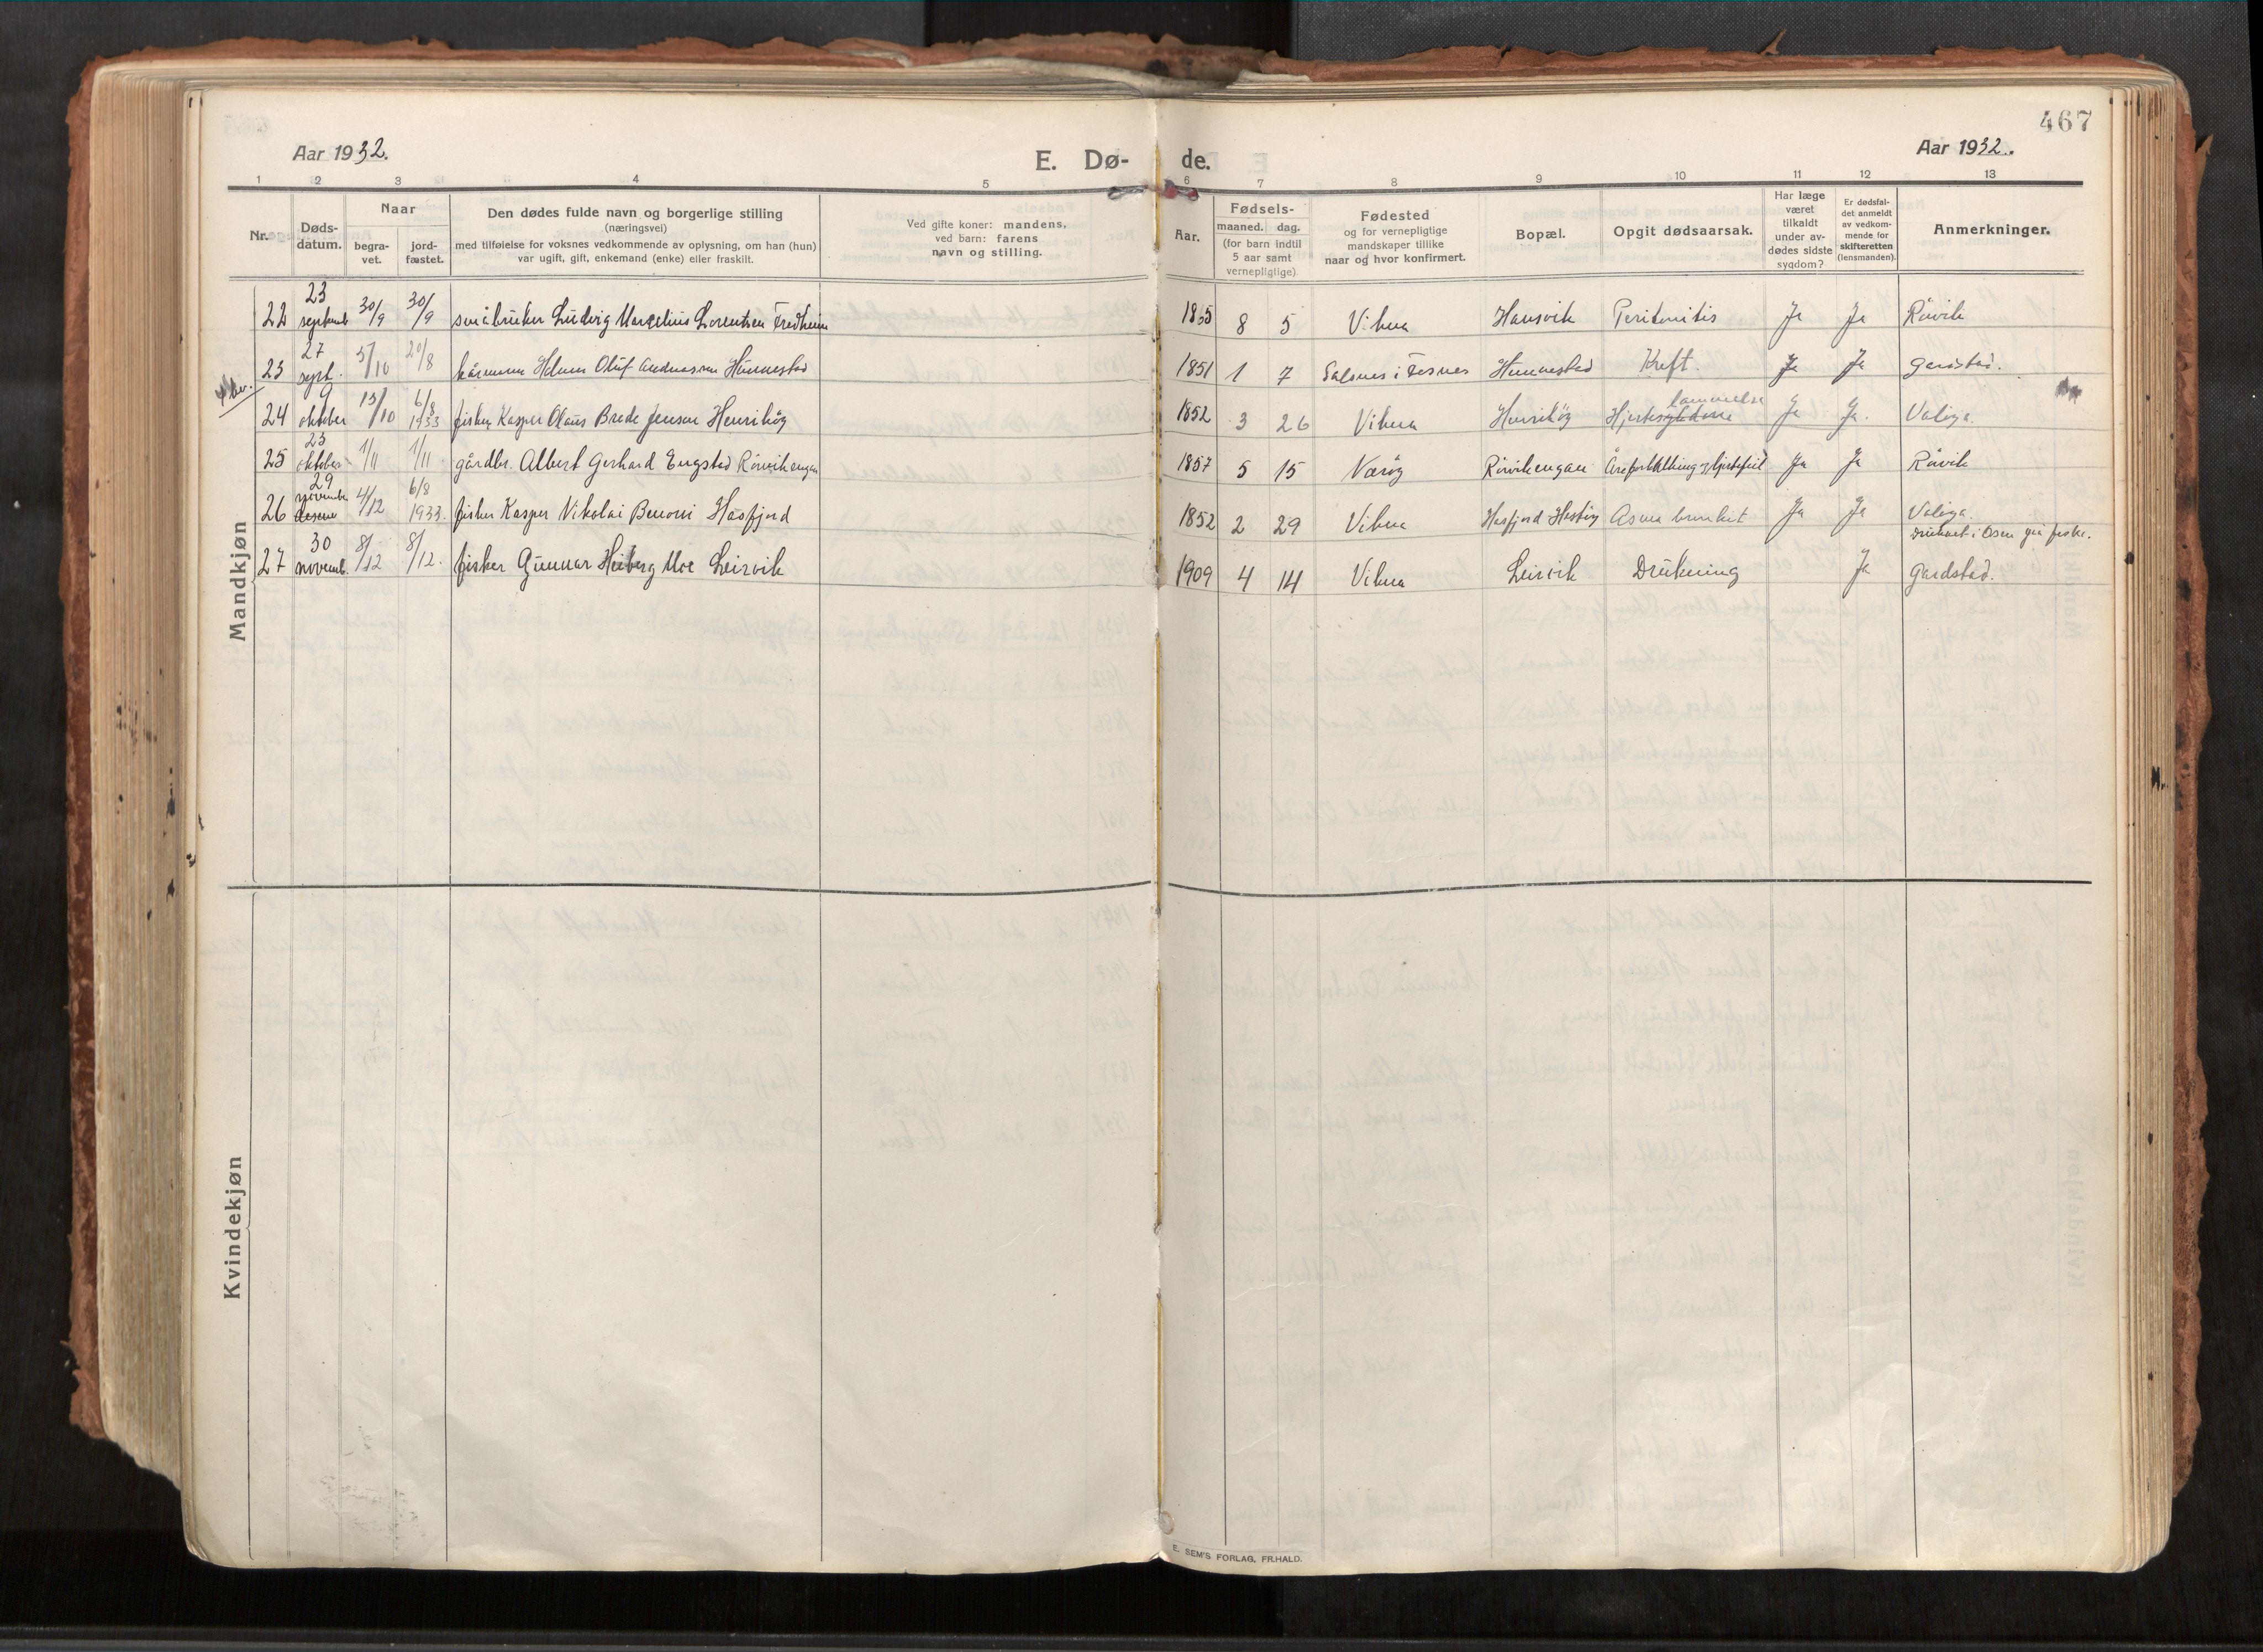 467
Aar 1932.
E. Dø- de.
Aar 1932.
1 2 3 4 5 6 7 8 9 10 11 12 13
Nr.
Døds-
datum.
Naar
begra-
vet.
jord-
fæstet.
Den dødes fulde navn og borgerlige stilling
(næringsvei)
med tilføielse for voksnes vedkommende av oplysning, om han (hun)
var ugift, gift, enkemand (enke) eller fraskilt.
Ved gifte koner: mandens,
ved barn: farens
navn og stilling.
Fødsels-
Aar.
maaned. dag.
(for barn indtil
5 aar samt
vernepligtige).
Fødested
og for vernepligtige
mandskaper tillike
naar og hvor konfirmert.
Bopæl.
Opgit dødsaarsak.
Har læge
været
tilkaldt
under av-
dødes sidste
sygdom?
Er dødsfal-
det anmeldt
av vedkom-
mende for
skifteretten
(lensmanden).
Anmerkninger.
Mandkjøn
22 23 septemb 30/9 30/9 småbruker Ludvig Marselius Lorentsen Fredheim 1865 8 5 Vikna Hansvik Peritonitis Ja Ja Rörvik
23 27 sept. 5/10 20/8 kårmann Helmer Oluf Andreassen Hunnestad 1851 1 7 Salsnes i Fosnes Hunnestad Kreft. Ja Ja Gardstad.
24 9 oktober 15/10 6/8 1933 fisker Kasper Olaus Brede Jensen Henriköy 1852 3 26 Vikna Henriköy Hjertesykdom lammelse Ja Ja. Valöya.
25 23 oktober 1/11 1/11 gårdbr. Albert Gerhard Engstad Rörvikengan 1857 5 15 Næröy Rörvikengan Åreforkalkning og hjertefeil Ja Ja Rörvik
26 29 november 4/12 6/8 1933. fisker Kasper Nikolai Benoni Hasfjord 1852 2 29 Vikna Hasfjord Asma bronkit Ja Ja Valöya.
27 30 novemb. 8/12 8/12. fisker Gunnar Heiberg Moe Leirvik 1909 4 14 Vikna Leirvik Drukning Ja druknet i Osen på fiske. Gardstad.
Kvindekjøn
E. SEM'S FORLAG, FR.HALD.